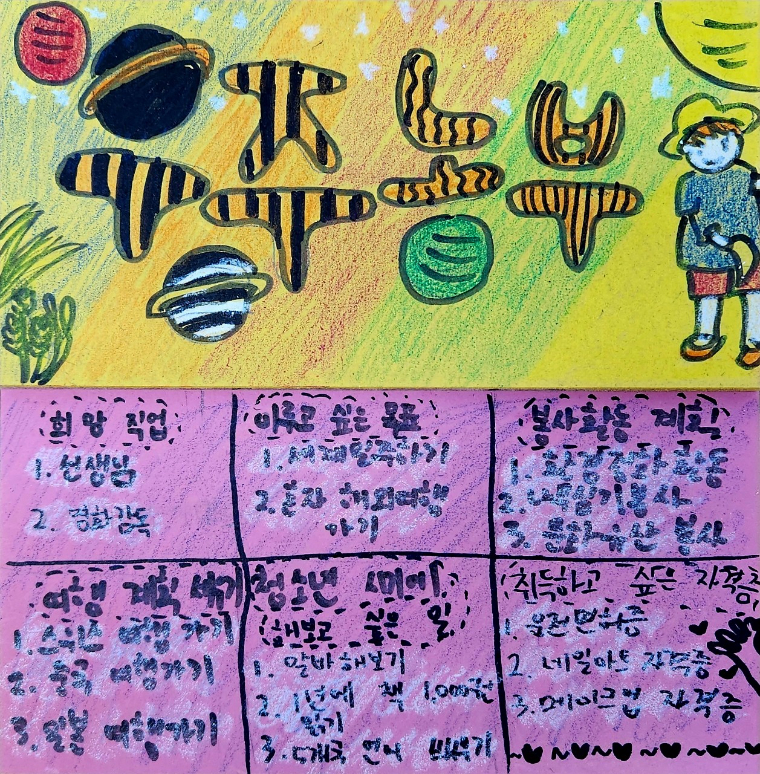 우주농부
희망 직업
1. 선생님
2. 영화감독
이루고 싶은 목표
1. 세계일주하기
2. 혼자 해외여행
가기
봉사활동 계획
1. 환경정화 활동
2.
3. 문화유산 봉사
여행 계획 세우기
1. 스위스 여행 가기
2. 여행가기
3. 일본 여행가기
청소년 시기에
해보고 싶은 일
1. 알바해보기
2. 1년에 책 1,000권
읽기
3. 5개국 언어 배우기
취득하고 싶은 자격증
1. 운전면허증
2. 네일아트 자격증
3. 메이크업 자격증